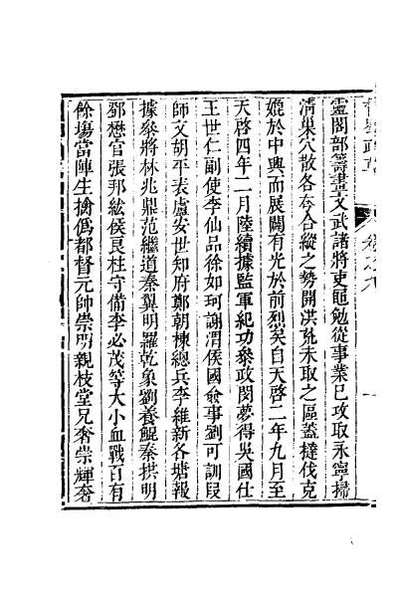 靈閣部籌畫文武諸將吏黽勉從事業已攻取永寧掃
清巢穴散各夸合縱之勢開洪荒未取之區蓋撻伐克
媲於中興而展闢有光於前烈矣自天啓二年九月至
天啓四年二月陸續據監軍紀功叅政閔夢得吳國仕
王世仁副使李仙品徐如珂謝渭侯國僉事劉可訓段
師文胡平表盧安世知府鄭朝棟總兵李維新各塘報
據叅將林兆鼎范繼道秦翼明羅乾象劉養鯤秦拱明
鄧懋官張邦紘侯良柱守備李必茂等大小血戰百有
餘塲當陣生擒僞都督元帥崇明親枝堂兄奢崇輝奢